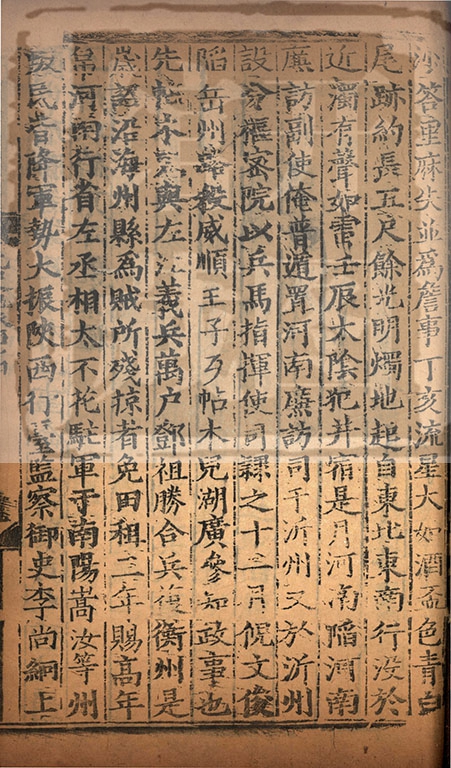 沙答里麻失並爲詹事丁亥流星大如酒盃色青白
尾跡約長五尺餘光明燭地起自東北東南行没於
近濁有聲如雷壬辰太陰犯井宿是月河南陷河南
廉訪副使俺普遁置河南廉訪司于沂州又於沂州
設分樞密院以兵馬指揮使司隸之十二月倪文俊
陷岳州路殺威順王子歹帖木兒湖廣參知政事也
先帖木兒與左江義兵萬户鄧祖勝合兵復衡州是
歲詔沿海州縣爲賊所殘掠者免田租三年賜高年
帛河南行省左丞相太不花駐軍于南陽嵩汝等州
叛民皆降軍勢大振陝西行臺監察御史李尚絅上